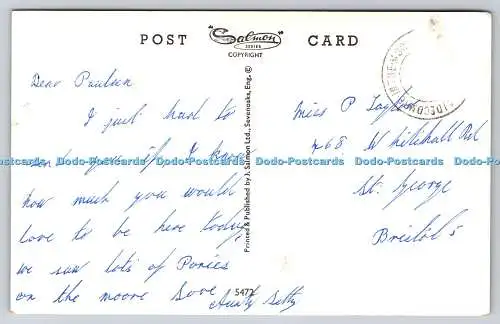 POST Salmon CARD
SERIES
COPYRIGHT
Dear
I just had to
send you
how much you would
love to be here today,
we saw lots of Ponies
on the moors Love
Aunty Betty
Printed & Published by J. Salmon Ltd., Sevenoaks, Eng. ©
5477
Miss P Taylor
Whitehall Rd
St. George
Bristol 5
Dodo-Postcards Dodo-Postcards Dodo-Postcards Dodo-Postcards Dodo-Postcards